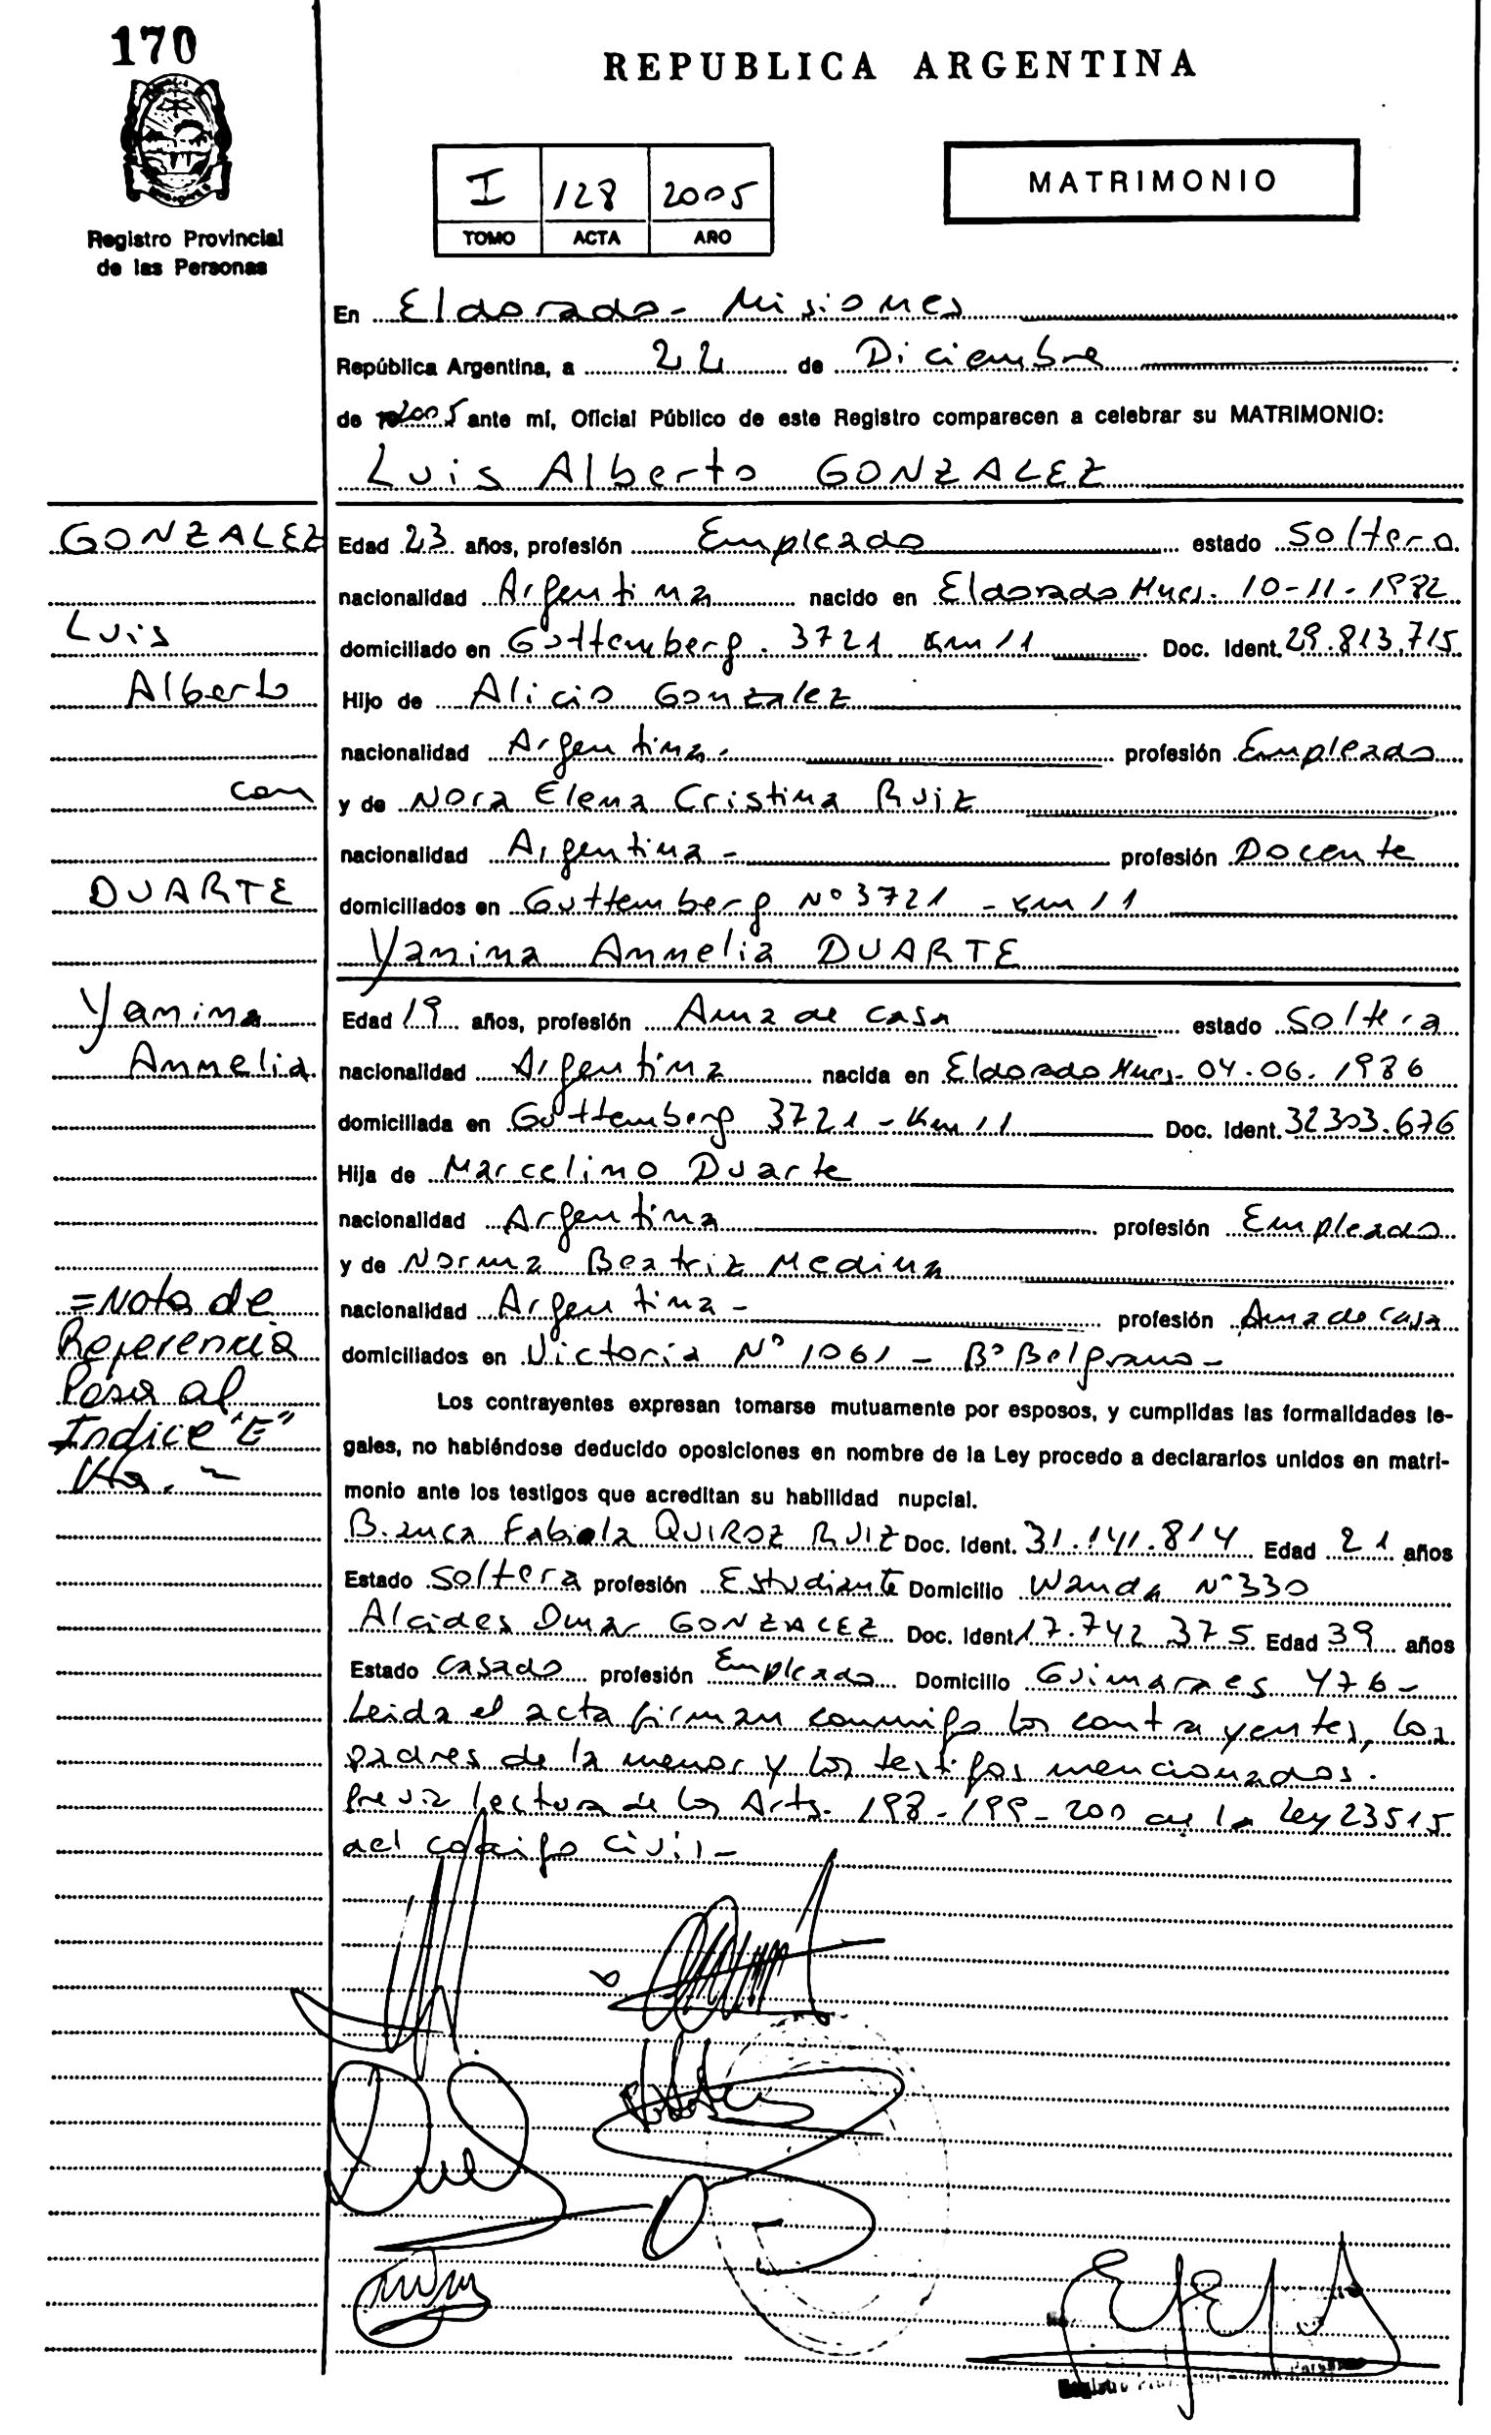 170
REPUBLICA ARGENTINA
I 128 2005
TOMO ACTA AÑO
MATRIMONIO
Registro Provincial
de las Personas
En Eldorado - Misiones
República Argentina, a 22 de Diciembre
de 2005 ante mí, Oficial Público de este Registro comparecen a celebrar su MATRIMONIO:
Luis Alberto GONZALEZ
GONZALEZ
Luis
Alberto
con
DUARTE
Yanina
Annelia
=Nota de
Referencia
Pasa al
Indice "E"
Vta.-
Edad 23 años, profesión Empleado estado Soltero
nacionalidad Argentina nacido en Eldorado Mnes. 10-11-1982
domiciliado en Guttemberg. 3721 Km 11 Doc. Ident. 29.813.715
Hijo de Alicio Gonzalez
nacionalidad Argentina. profesión Empleado
y de Nora Elena Cristina Ruiz
nacionalidad Argentina - profesión Docente
domiciliados en Guttemberg Nº 3721 - Km 11
Yanina Annelia DUARTE
Edad 19 años, profesión Ama de casa estado Soltera
nacionalidad Argentina nacida en Eldorado Mnes. 04.06.1986
domiciliada en Guttemberg 3721 - Km 11 Doc. Ident. 32303.676
Hija de Marcelino Duarte
nacionalidad Argentina profesión Empleado
y de Norma Beatriz Medina
nacionalidad Argentina - profesión Ama de casa
domiciliados en Victoria Nº 1061 - Bº Belgrano -
Los contrayentes expresan tomarse mutuamente por esposos, y cumplidas las formalidades le-
gales, no habiéndose deducido oposiciones en nombre de la Ley procedo a declararlos unidos en matri-
monio ante los testigos que acreditan su habilidad nupcial.
Bianca Fabiola QUIROZ RUIZ Doc. Ident. 31.141.814 Edad 21 años
Estado Soltera profesión Estudiante Domicilio Wanda Nº 330
Alcides Omar GONZALEZ Doc. Ident 17.742.375 Edad 39 años
Estado Casado profesión Empleado Domicilio Guimaraes 476 -
Leida el acta firman conmigo los contrayentes, los
padres de la menor y los testigos mencionados.
Previa lectura de los Arts. 198-199-200 de la Ley 23515
del codigo civil -